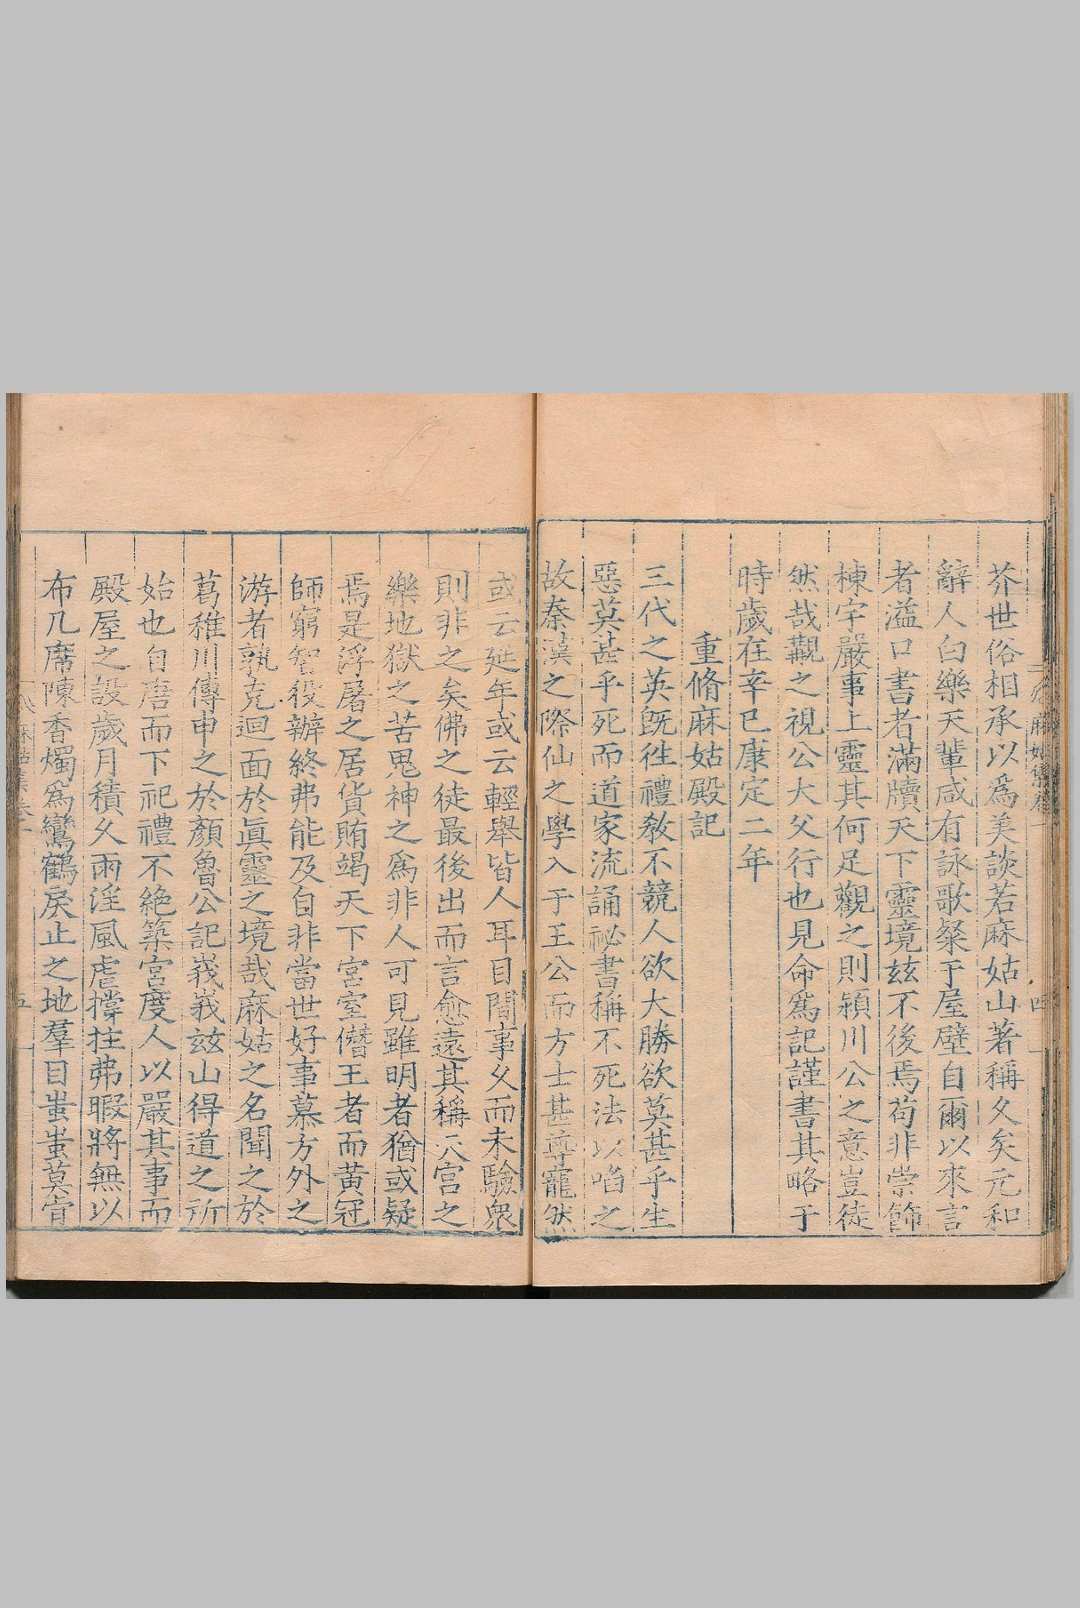 芥世俗相承以為美談若麻姑山著稱久矣元和
辭人白樂天輩咸有詠歌粲于屋壁自爾以來言
者溢口書者滿牘天下靈境玆不後焉苟非崇飾
棟宇嚴事上靈其何足觀之則潁川公之意豈徒
然哉觀之視公大父行也見命為記謹書其略于
時歲在辛巳康定二年
重脩麻姑殿記
三代之英旣徃禮敎不競人欲大勝欲莫甚乎生
惡莫甚乎死而道家流誦祕書稱不死法以啗之
故秦漢之際仙之學入于王公而方士甚尊寵然
或云延年或云輕舉皆人耳目間事久而未驗衆
則非之矣佛之徒最後出而言愈遠其稱天宮之
樂地獄之苦鬼神之為非人可見雖明者猶或疑
焉是浮屠之居貨賄竭天下宮室僭王者而黃冠
師窮智役辦終弗能及自非當世好事慕方外之
游者孰克迴面於眞靈之境哉麻姑之名聞之於
葛稚川傳申之於顏魯公記峩峩玆山得道之所
始也自唐而下祀禮不絶築宮度人以嚴其事而
殿屋之設歲月積久雨淫風虐撐拄弗暇將無以
布几席陳香燭為鸞鶴戾止之地羣目蚩蚩莫肯
麻姑集卷一
四
五